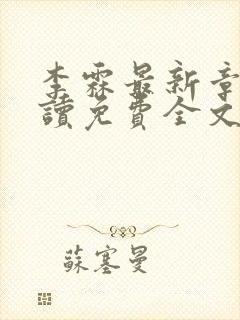 李霖最新章
讀免費全文
蘇塞曼